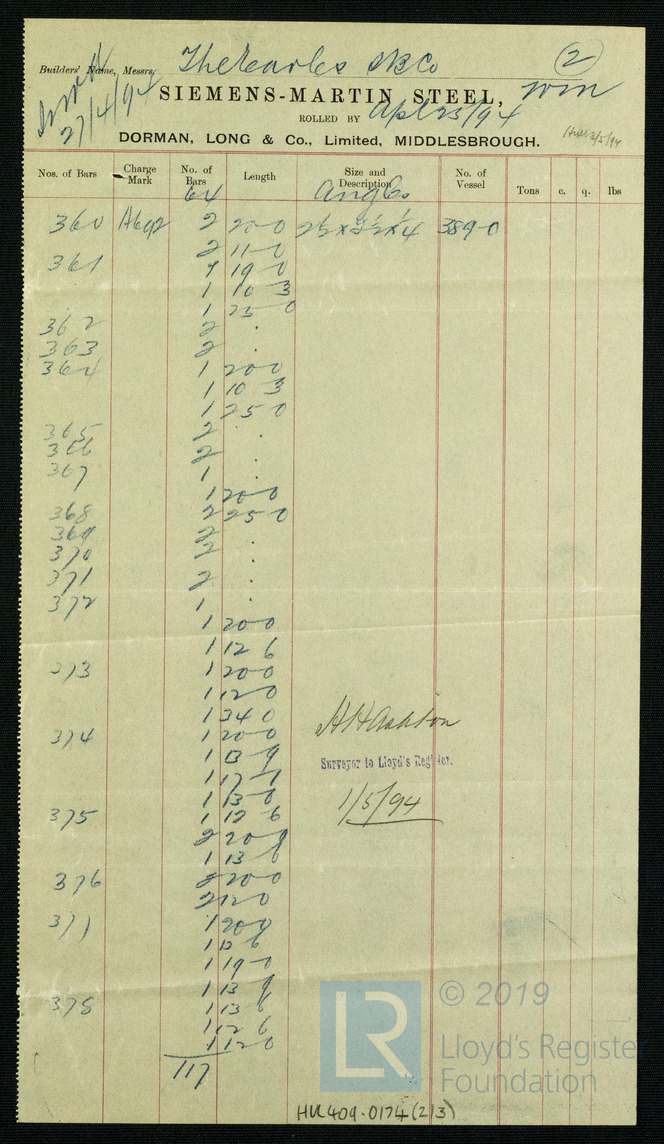 Builders' Name, Messrs. The Earles SB Co (2)
27/4/94
SIEMENS-MARTIN STEEL,
ROLLED BY April 25/94
DORMAN, LONG & Co., Limited, MIDDLESBROUGH.
Hull 3/5/94
Nos. of Bars Charge Mark No. of Bars Length Size and Description No. of Vessel Tons c. q. lbs
64 Angles
360 A692 2 20-0 2½ x 2½ x ¼ 389-0
2 11-0
361 7 19-0
1 10 3
1 25 0
362 2 .
363 2 .
364 1 20-0
1 10 3
1 25 0
365 2 .
366 2 .
367 1 .
1 20-0
368 2 25 0
369 2 .
370 2 .
371 2 .
372 1 .
1 20-0
1 12 6
373 1 20-0
1 12 0
1 34 0
374 1 20-0
1 13 9
1 17 1
1 13 6
375 1 12 6
2 20
1 13 6
376 2 20-0
2 12 0
377 1 20
1 12 6
1 19-0
1 13
378 1 13 6
1 12 6
1 12 0
117
H H Ashton
Surveyor to Lloyd's Register.
1/5/94
LR
© 2019
Lloyd's Register
Foundation
HUL409-0174(2/3)